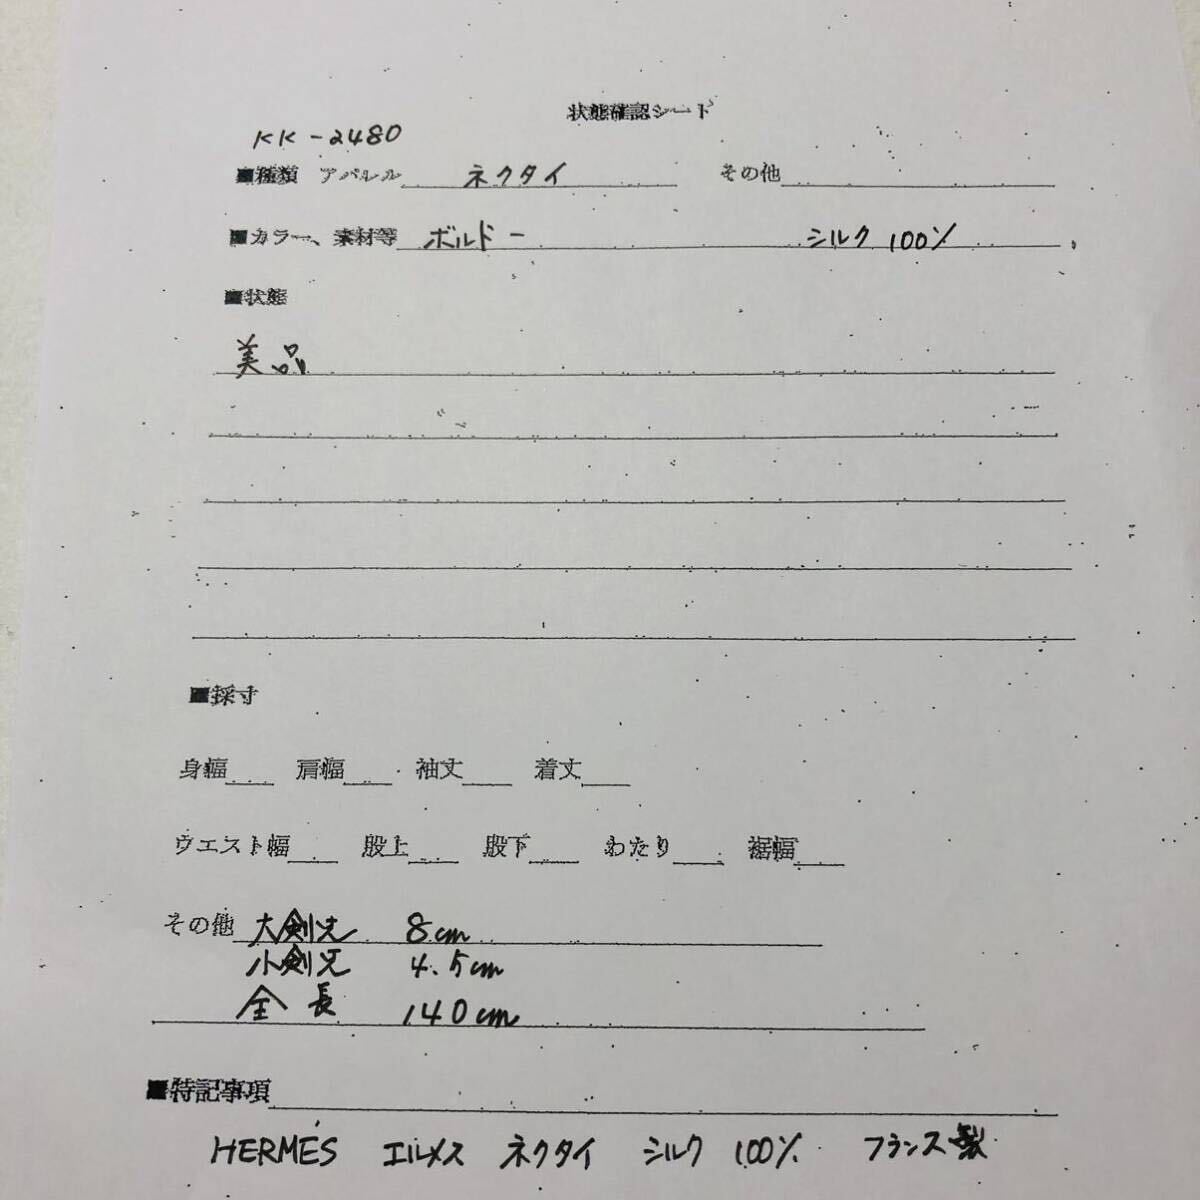 状態確認シート
KK-2480
■種類 アパレル ネクタイ その他
■カラー、素材等 ボルドー シルク 100%
■状態
美品
■採寸
身幅 肩幅 袖丈 着丈
ウエスト幅 股上 股下 わたり 裾幅
その他 大剣先 8cm
小剣先 4.5cm
全長 140cm
■特記事項
HERMÈS エルメス ネクタイ シルク 100% フランス製